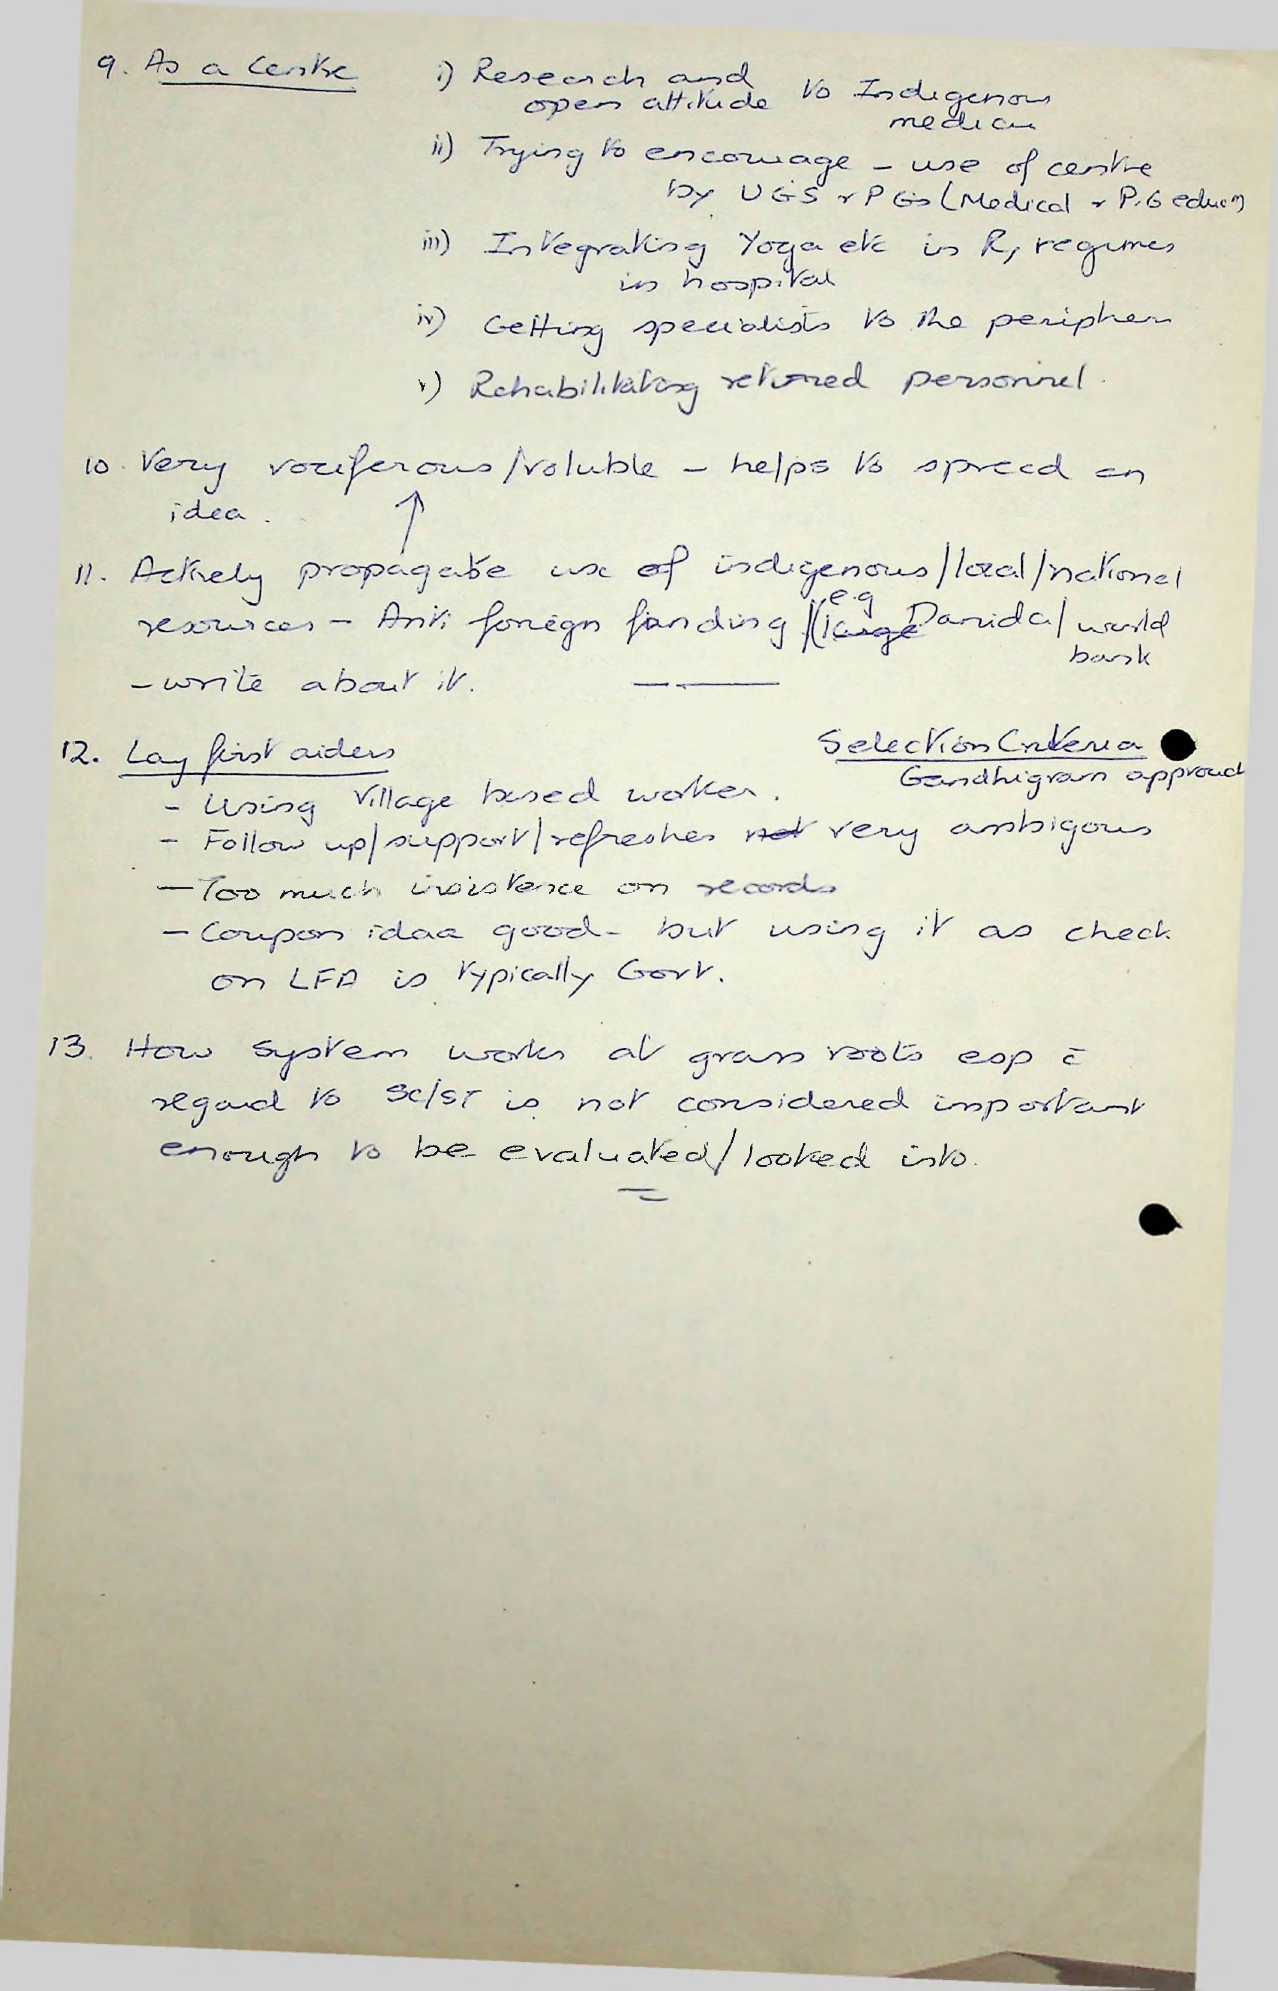 9. As a Centre
i) Research and open attitude to Indigenous
medicine
ii) Trying to encourage - use of centre
by UGS & PGs (Medical & P.G educn)
iii) Integrating Yoga etc in Rx regimes
in hospital
iv) Getting specialists to the periphery
v) Rehabilitating retured personnel.
10. Very vociferous/voluble - helps to spread an
idea.
11. Actively propagate use of indigenous/local/national
resources - Anti foreign funding (large e.g Danida/world
bank
- write about it.
12. Lay first aiders
Selection Criteria
Gandhigram approach
- Using Village based worker.
- Follow up/support/refresher not very ambigous
- Too much insistence on records
- Coupon idaa good - but using it as check
on LFA is typically Govt.
13. How system works at grass roots esp c̄
regard to SC/ST is not considered important
enough to be evaluated/looked into.